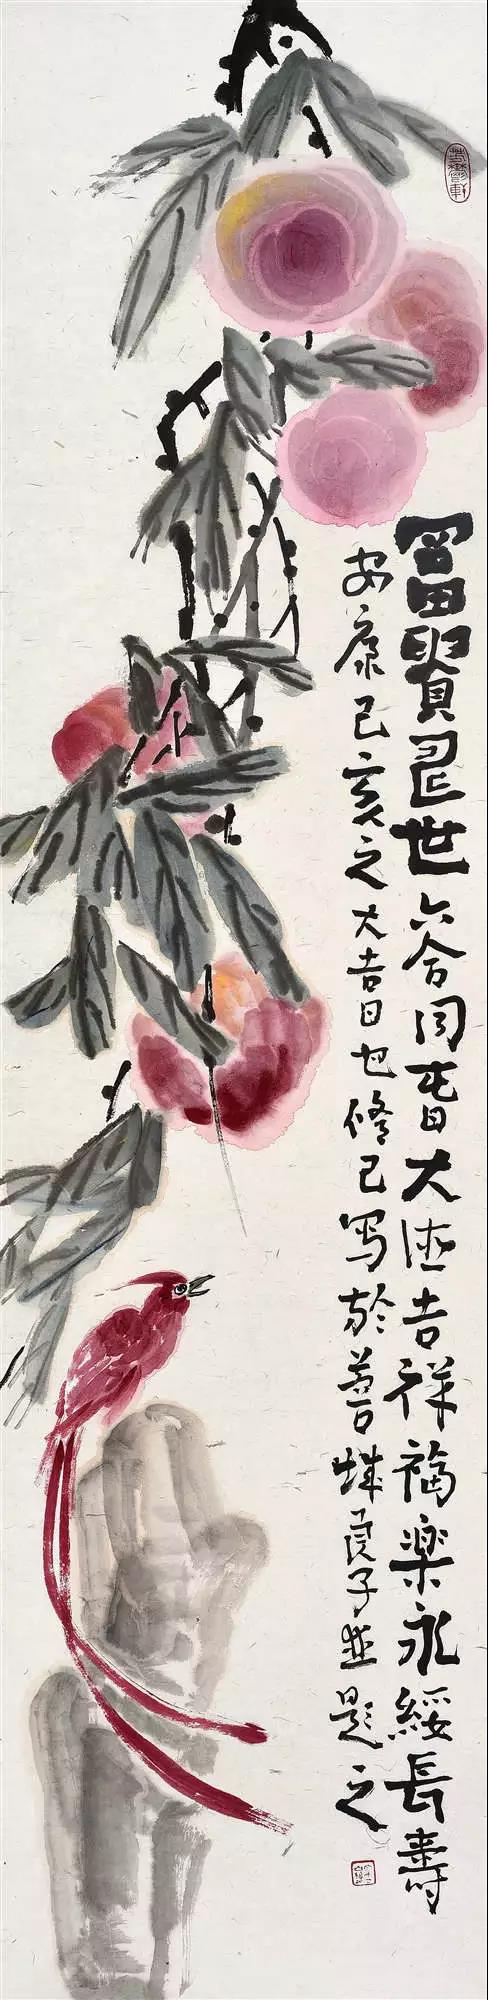 富貴世六合同春大德吉祥福樂永綏長壽
安康己亥之大吉日也修己写於蓉城子並題之